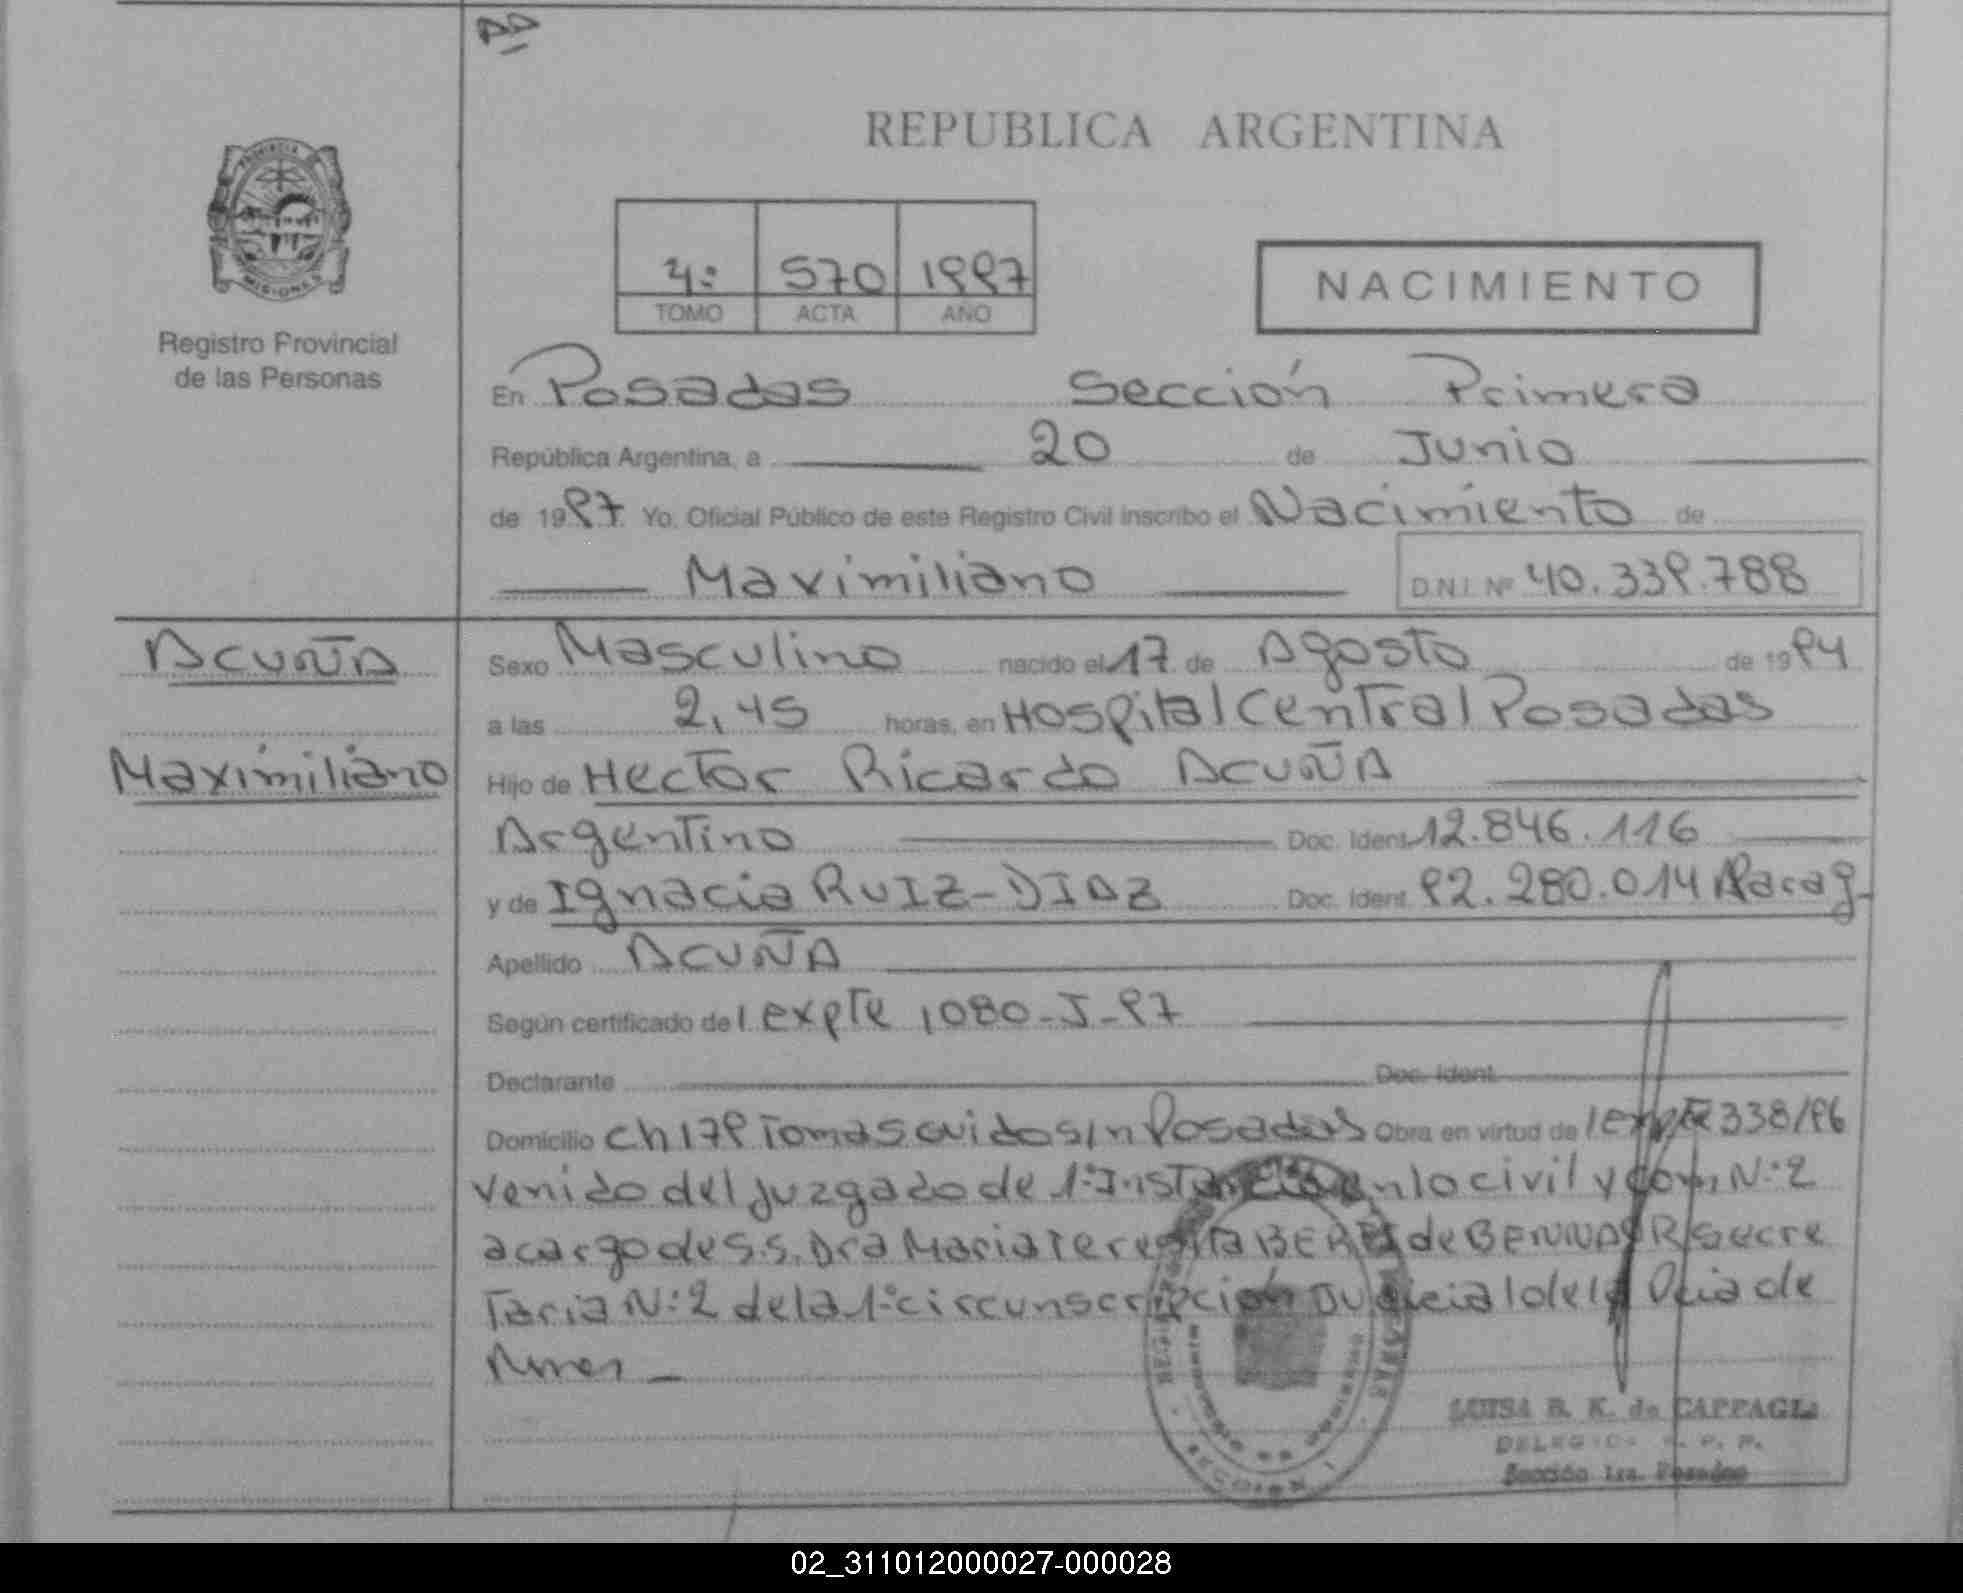 REPUBLICA ARGENTINA
PROVINCIA
MISIONES
Registro Provincial
de las Personas
4º 570 1997
TOMO ACTA AÑO
NACIMIENTO
En Posadas Sección Primera
República Argentina, a 20 de Junio
de 1997 Yo, Oficial Público de este Registro Civil inscribo el Nacimiento de
Maximiliano D.N.I. Nº 40.339.788
ACUÑA
Maximiliano
Sexo Masculino nacido el 17 de Agosto de 1994
a las 2,45 horas, en Hospital Central Posadas
Hijo de Hector Ricardo ACUÑA
Argentino Doc. Ident. 12.846.116
y de Ignacia RUIZ-DIAZ Doc. Ident. 92.280.014 Parag.
Apellido ACUÑA
Según certificado del expte 1080-J-97
Declarante Doc. Ident.
Domicilio Ch 179 Tomas Guido s/n Posadas Obra en virtud de l expte 338/96
venido del juzgado de 1º Instancia en lo civil y com, Nº 2
a cargo de S.S. Dra Maria Teresita de BENNAR secre
Taria Nº 2 de la 1º circunscripción Judicial de la Pcia de
Mnes
SECCION 1
LUISA B. K. de CAPPAGLI
Sección 1ra. Posadas
02_311012000027-000028